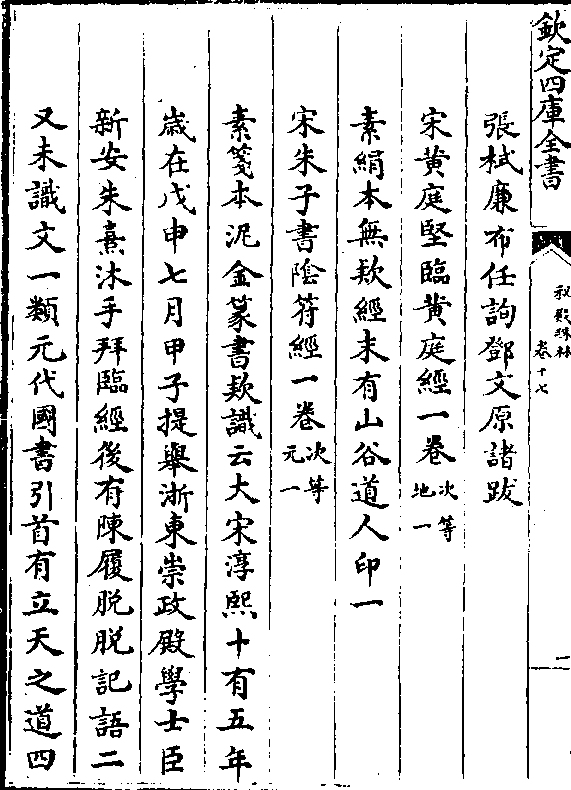 欽定四庫全書
秘殿珠林
卷十七
一
張栻廉布任詢鄧文原諸跋
宋黄庭堅臨黄庭經一卷次等地一
素絹本無欵經末有山谷道人印一
宋朱子書陰符經一卷次等元一
素箋本泥金篆書欵識云大宋淳熙十有五年
歳在戊申七月甲子提舉浙東崇政殿學士臣
新安朱熹沐手拜臨經後有陳履脱脱記語二
又未識文一類元代國書引首有立天之道四